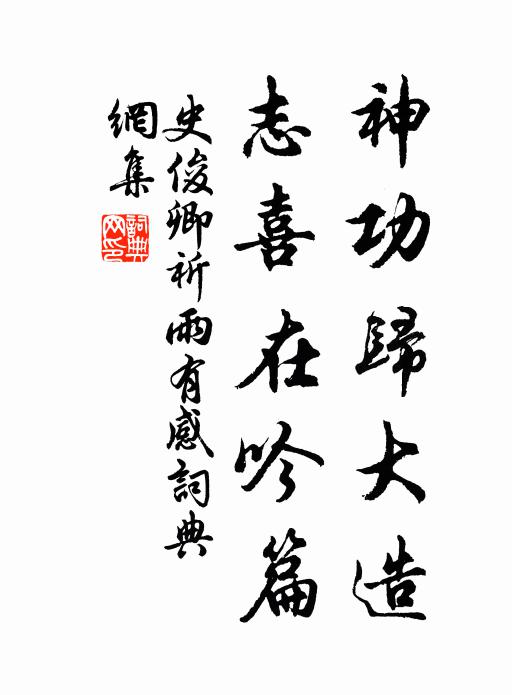 神功歸大造
志喜在吟篇
史俊卿祈雨有感詞典
網集
詞典
网印